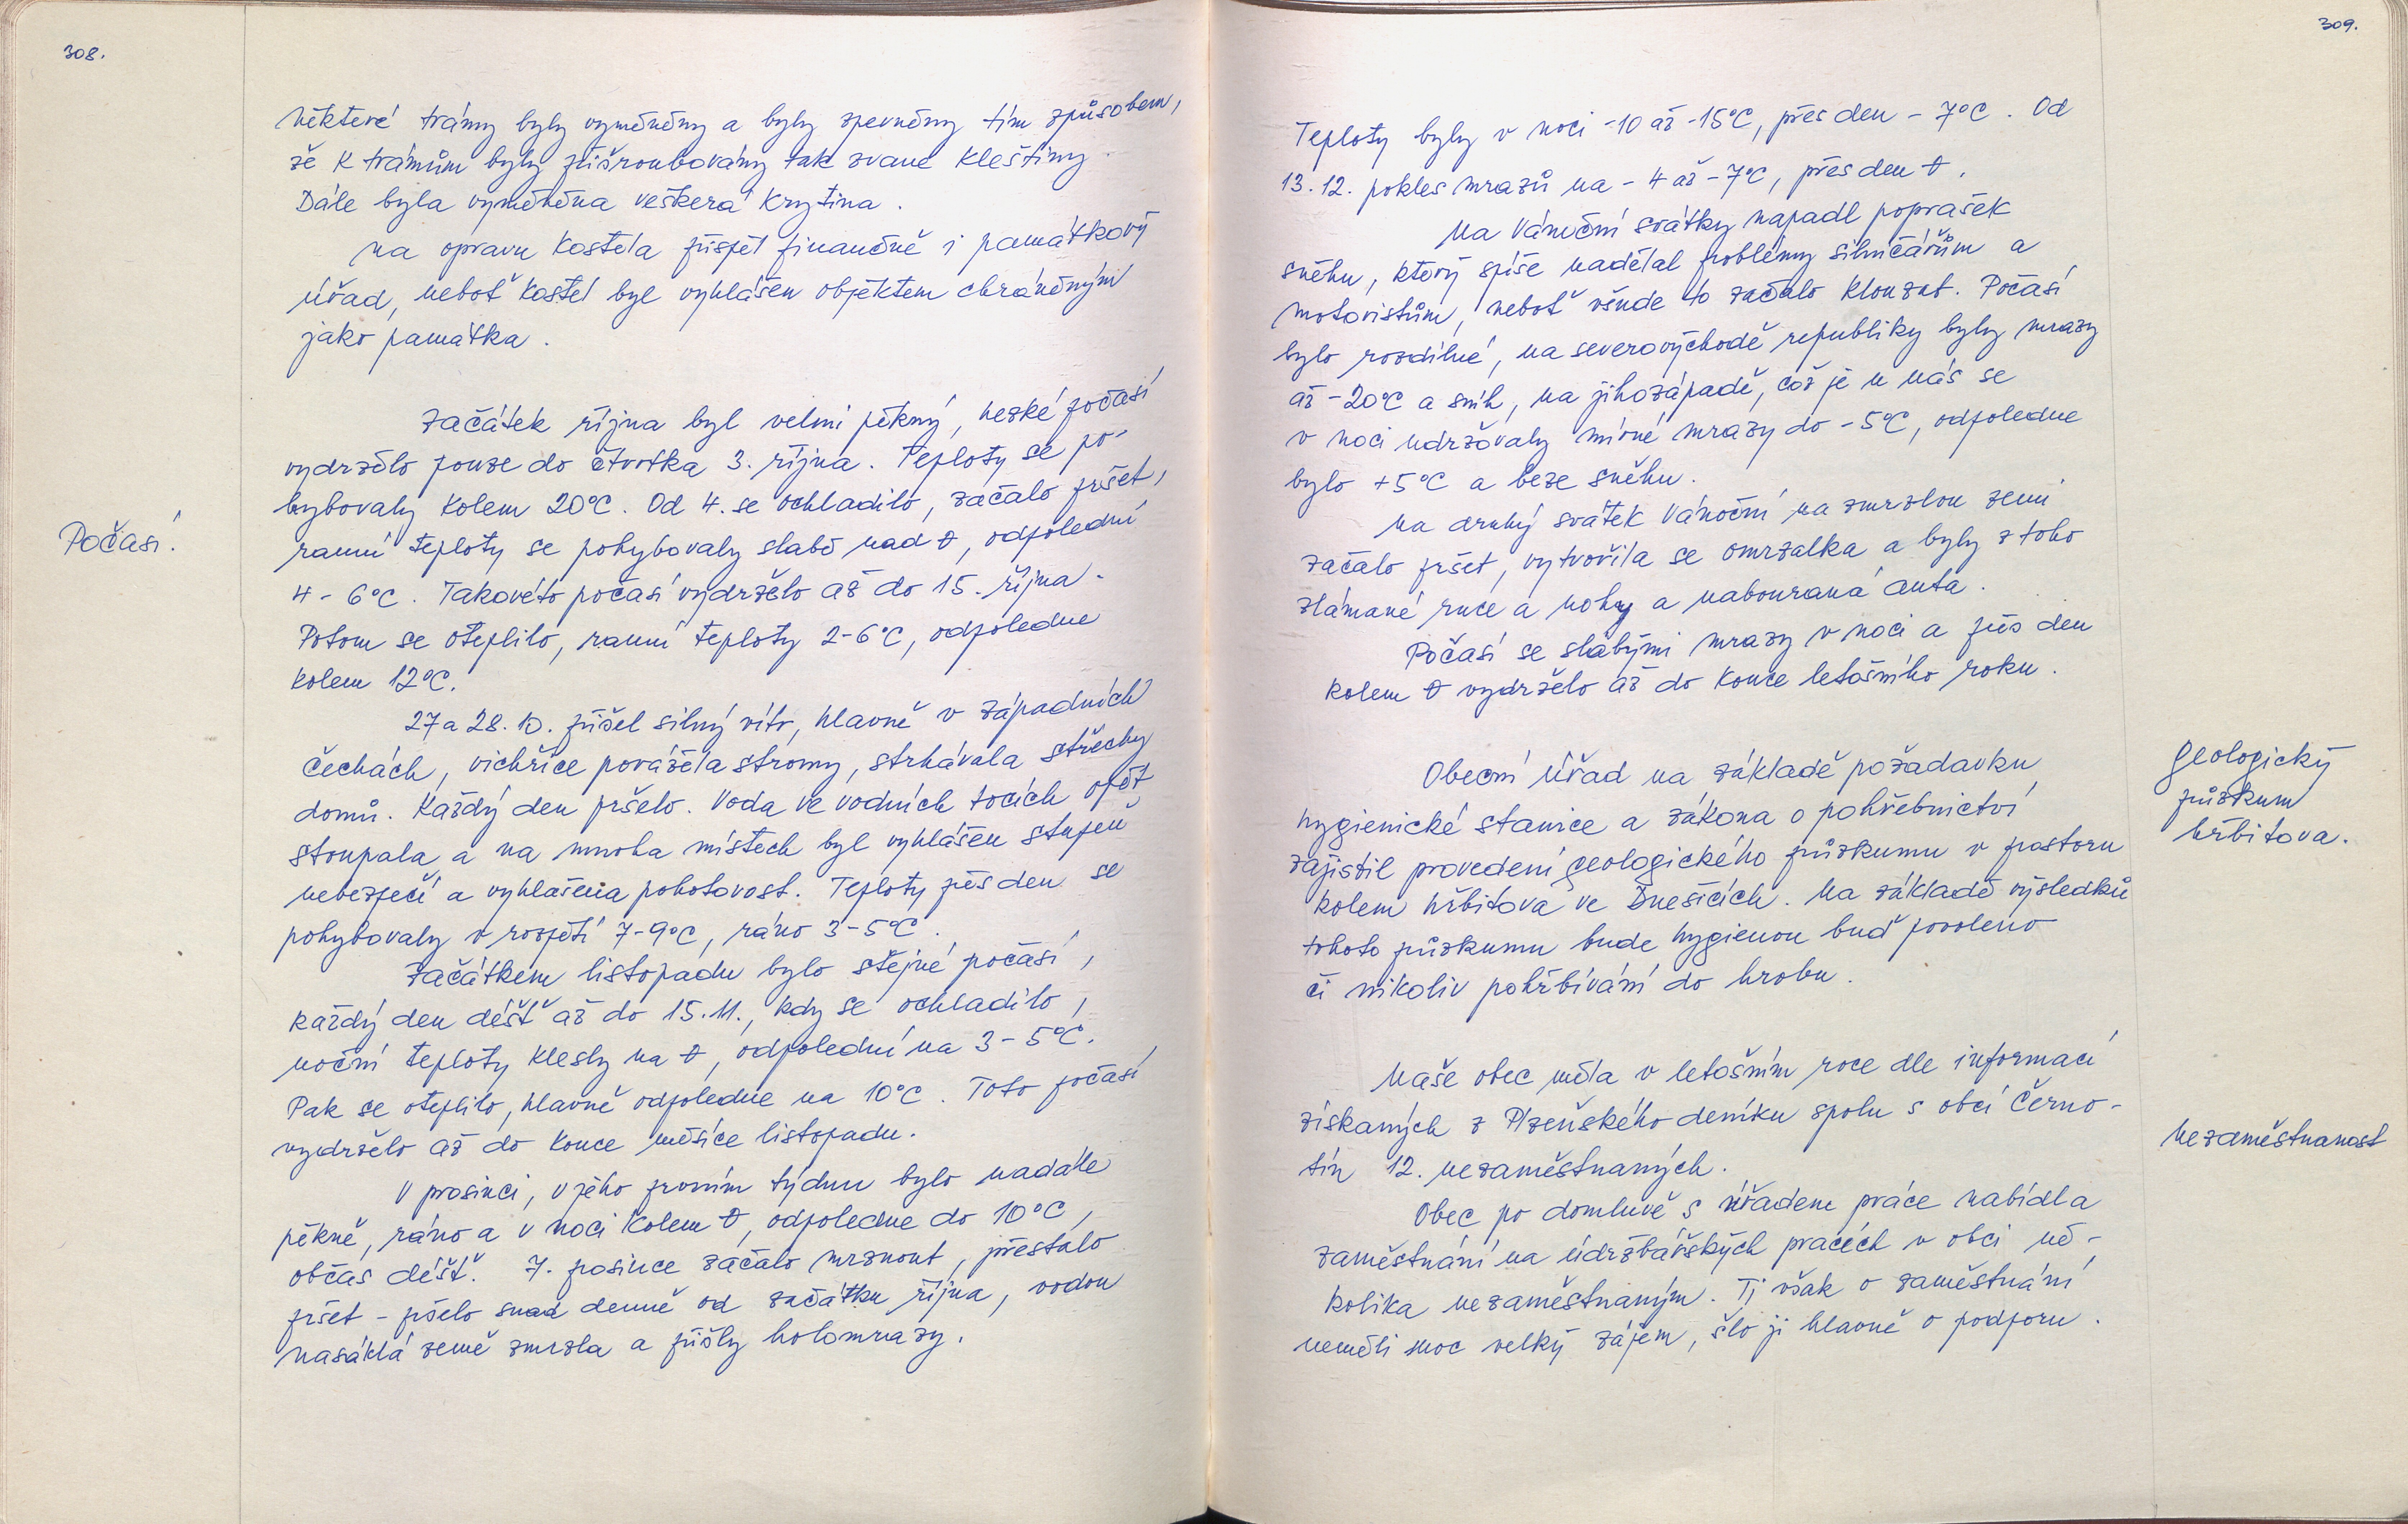 308.
některé trámy byly vyměněny a byly zpevněny tím způsobem,
že k trámům byly přišroubovány tak zvané kleštiny.
Dále byla vyměněna veškerá krytina.
Na opravu kostela přispěl finančně i památkový
úřad, neboť kostel byl vyhlášen objektem chráněným
jako památka.
Počasí.
Začátek října byl velmi pěkný, hezké počasí
vydrželo pouze do čtvrtka 3. října. Teploty se po-
hybovaly kolem 20°C. Od 4. se ochladilo, začalo pršet,
ranní teploty se pohybovaly slabě nad 0, odpolední
4 - 6°C. Takovéto počasí vydrželo až do 15. října.
Potom se oteplilo, ranní teploty 2-6°C, odpoledne
kolem 12°C.
27 a 28. 10. přišel silný vítr, hlavně v západních
Čechách, vichřice povážela stromy, strhávala střechy
domů. Každý den pršelo. Voda ve vodních tocích opět
stoupala, a na mnoha místech byl vyhlášen stupeň
nebezpečí a vyhlášena pohotovost. Teploty přes den se
pohybovaly v rozpětí 7-9°C, ráno 3-5°C.
Začátkem listopadu bylo stejné počasí,
každý den déšť až do 15.11., kdy se ochladilo,
noční teploty klesly na 0, odpolední na 3-5°C.
Pak se oteplilo, hlavně odpoledne na 10°C. Toto počasí
vydrželo až do konce měsíce listopadu.
V prosinci, v jeho prvním týdnu bylo nadále
pěkně, ráno a v noci kolem 0, odpoledne do 10°C,
občas déšť. 7. prosince začalo mrznout, přestalo
pršet - pršelo snad denně od začátku října, vodou
nasáklá země zmrzla a přišly holomrazy.
309.
Teploty byly v noci -10 až -15°C, přes den - 7°C. Od
13.12. pokles mrazů na - 4 až - 7°C, přes den 0.
Na Vánoční svátky napadl poprašek
sněhu, který spíše nadělal problémy silničářům a
motoristům, neboť všude to začalo klouzat. Počasí
bylo rozdílné, na severovýchodě republiky byly mrazy
až -20°C a sníh, na jihozápadě, což je u nás se
v noci udržovaly mírné mrazy do -5°C, odpoledne
bylo +5°C a beze sněhu.
Na druhý svátek Vánoční na zmrzlou zemi
začalo pršet, vytvořila se omrzalka a byly z toho
zlámané ruce a nohy a nabouraná auta.
Počasí se slabými mrazy v noci a přes den
kolem 0 vydrželo až do konce letošního roku.
Geologický
průzkum
hřbitova.
Obecní úřad na základě požadavku
hygienické stanice a zákona o pohřebnictví
zajistil provedení geologického průzkumu v prostoru
kolem hřbitova ve Dnešicích. Na základě výsledků
tohoto průzkumu bude hygienou buď povoleno
či nikoliv pohřbívání do hrobu.
Naše obec měla v letošním roce dle informací
získaných z Plzeňského deníku spolu s obcí Černo-
tín 12. nezaměstnaných.
Nezaměstnanost
Obec po domluvě s úřadem práce nabídla
zaměstnání na údržbářských pracích v obci ně-
kolika nezaměstnaným. Ti však o zaměstnání
neměli moc velký zájem, šlo jí hlavně o podporu.